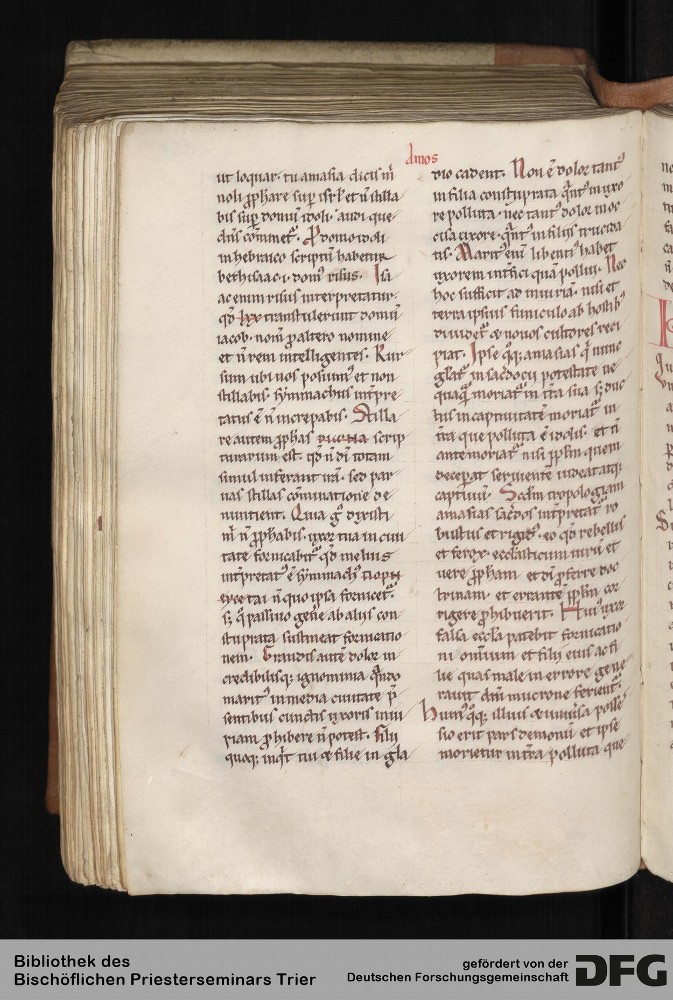 Amos
ut loquar· tu amasia dicis m̄
noli ꝓphare sup̄ isrl̓ et n̄ stilla
bis sup̄ domū idoli· audi que
dn̄s cōminet᷑· P domo idoli
in hebraico scriptū habetur
beth isaac·i· domꝰ risus· Isa
ac enim risus interpretatur·
qd̄ lxx transtulerunt domū
iacob· nom̄ ꝓ altero nomine
et n̄ rem intelligentes· Rur
sum ubi nos posuimꝰ et non
stillabis· symmachus int̄pre
tatus ē n̄ increpabis· Stilla
re autem ꝓphas scrip
turarum est· qd̄ n̄ dī totam
simul inferant irā· sed par
uas stillas cōminatione de
nuntient· Quia gͦ dixisti
m̄ n̄ ꝓphabis· uxor tua in ciui
tate fornicabit᷑ qd̄ melius
int̄pretatꝰ ē symmachꝰ
n̄ quo ipsa fornicet᷑·
s; q̄ passiuo gen̄e ab aliis con
stuprata sustineat fornicatio
nem· Grandis autē dolor in
credibilisq; ignominia q̄ndo
maritꝰ in media ciuitate p̄
sentibus cunctis uxoris iniu
riam ꝓhibere n̄ potest· Filii
quoq; inqͥt tui & filie in gla
dio cadent· Non ē dolor tantꝰ
in filia constuprata q̄ntꝰ in uxo
re polluta· nec tantꝰ dolor in oc
cisa uxore· q̄ntꝰ in filiis trucida
tis· Maritꝰ enī libentiꝰ habet
uxorem int̄fici quā pollui· Nec
hoc sufficit ad iniuriā· nisi et
terra ipsius funiculo ab hostibꝰ
diuidet᷑ & nouos cultores reci
piat· Ipse qͦq; amasias q̄ nunc
gl̄at᷑ in sacdocii potestate ne
quaq̄ moriat᷑ in t̄ra sua s; duc
tus in captiuitatē moriat᷑ in
t̄ra que polluta ē idolis· et n̄
ante moriat᷑ nisi ppl̄m quem
decepat seruientē uideat atq;
captiuū· Scd̄m tropologiam
amasias sac̄dos int̄pretat᷑ ro
bustus et rigidꝰ· eo qd̄ rebellis
et ferox· ecclasticum uirū et
uere ꝓpham et dī ꝓferre doc
trinam et errantē ppl̄m cor
rigere ꝓhibuerit· Huiꝰ uxor
falsa eccl̄a patebit fornicatio
ni omnium et filii eius ac fi
lie quas male in errore gene
rauit dn̄i mucrone ferient᷑·
Humꝰ qͦq; illius & uniūsa posses
sio erit pars demonū et ipse
morietur in t̄ra polluta que
Bibliothek des
Bischöflichen Priesterseminars Trier
gefördert von der
Deutschen Forschungsgemeinschaft
DFG